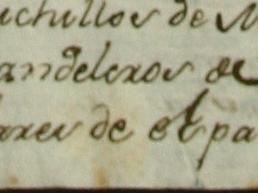 uchillos de M
andeleros de
ares de el pa